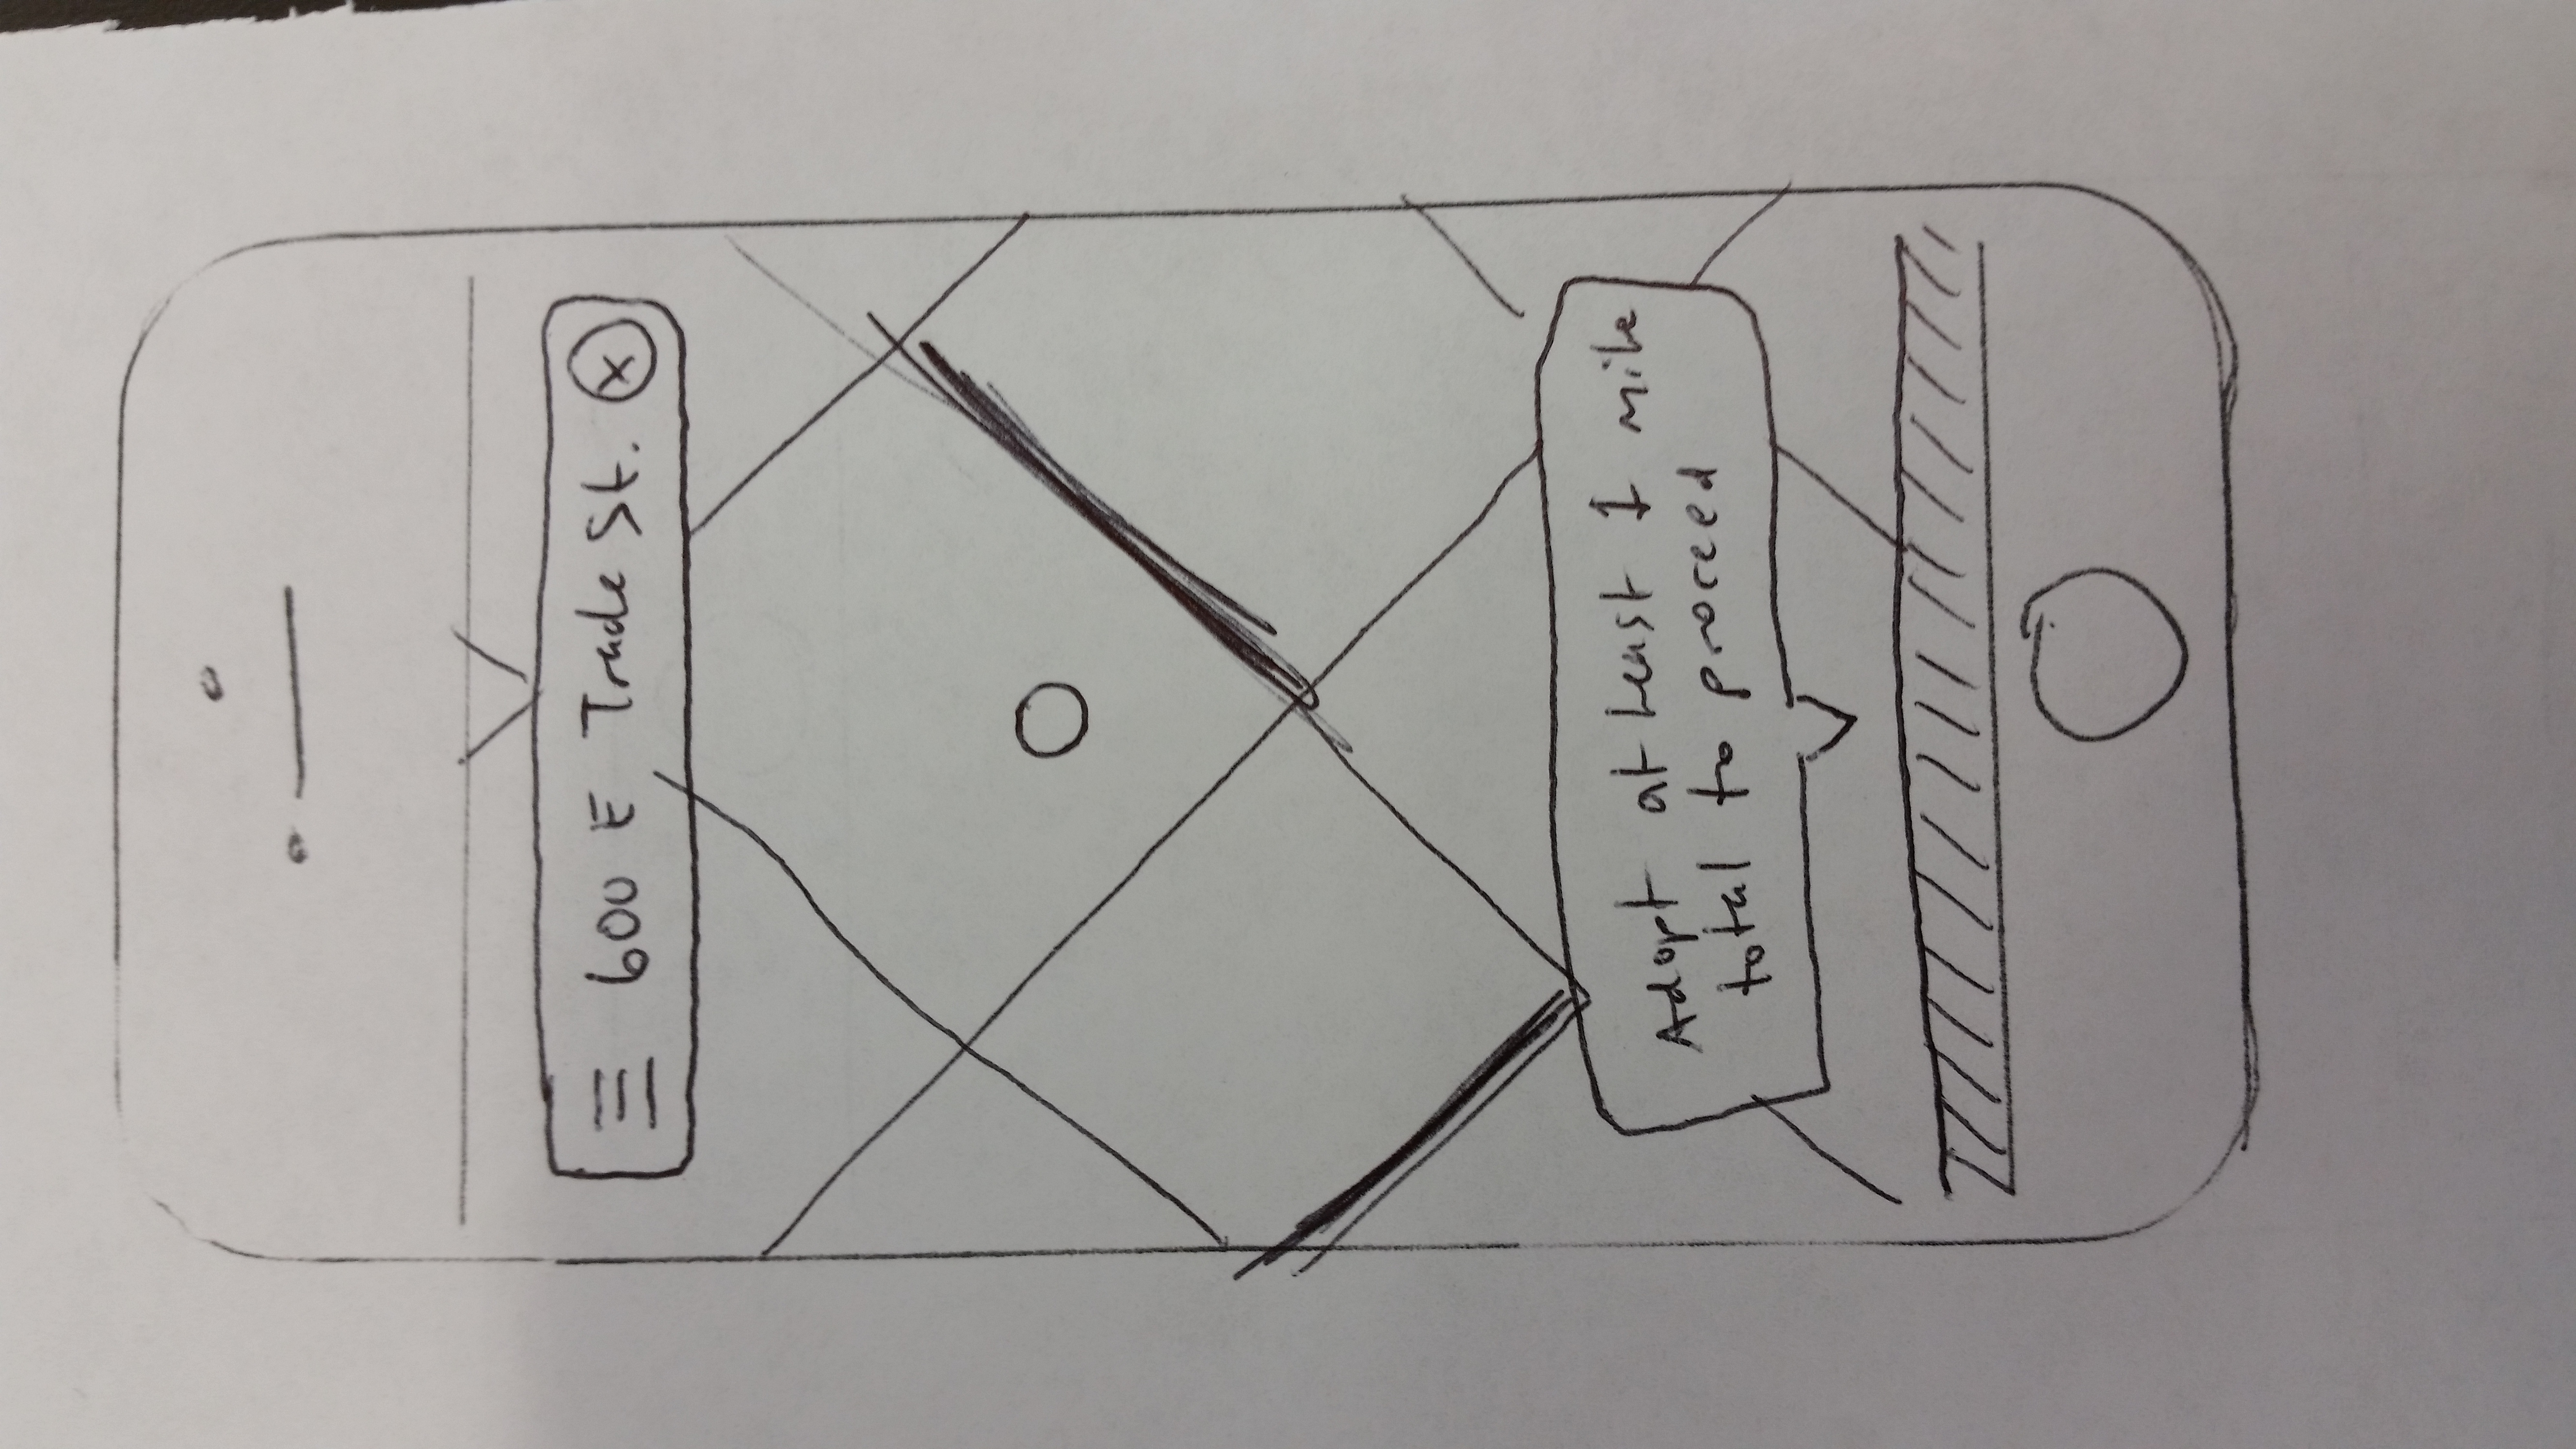 600 E Trade St.
Adopt at least 1 mile
total to proceed